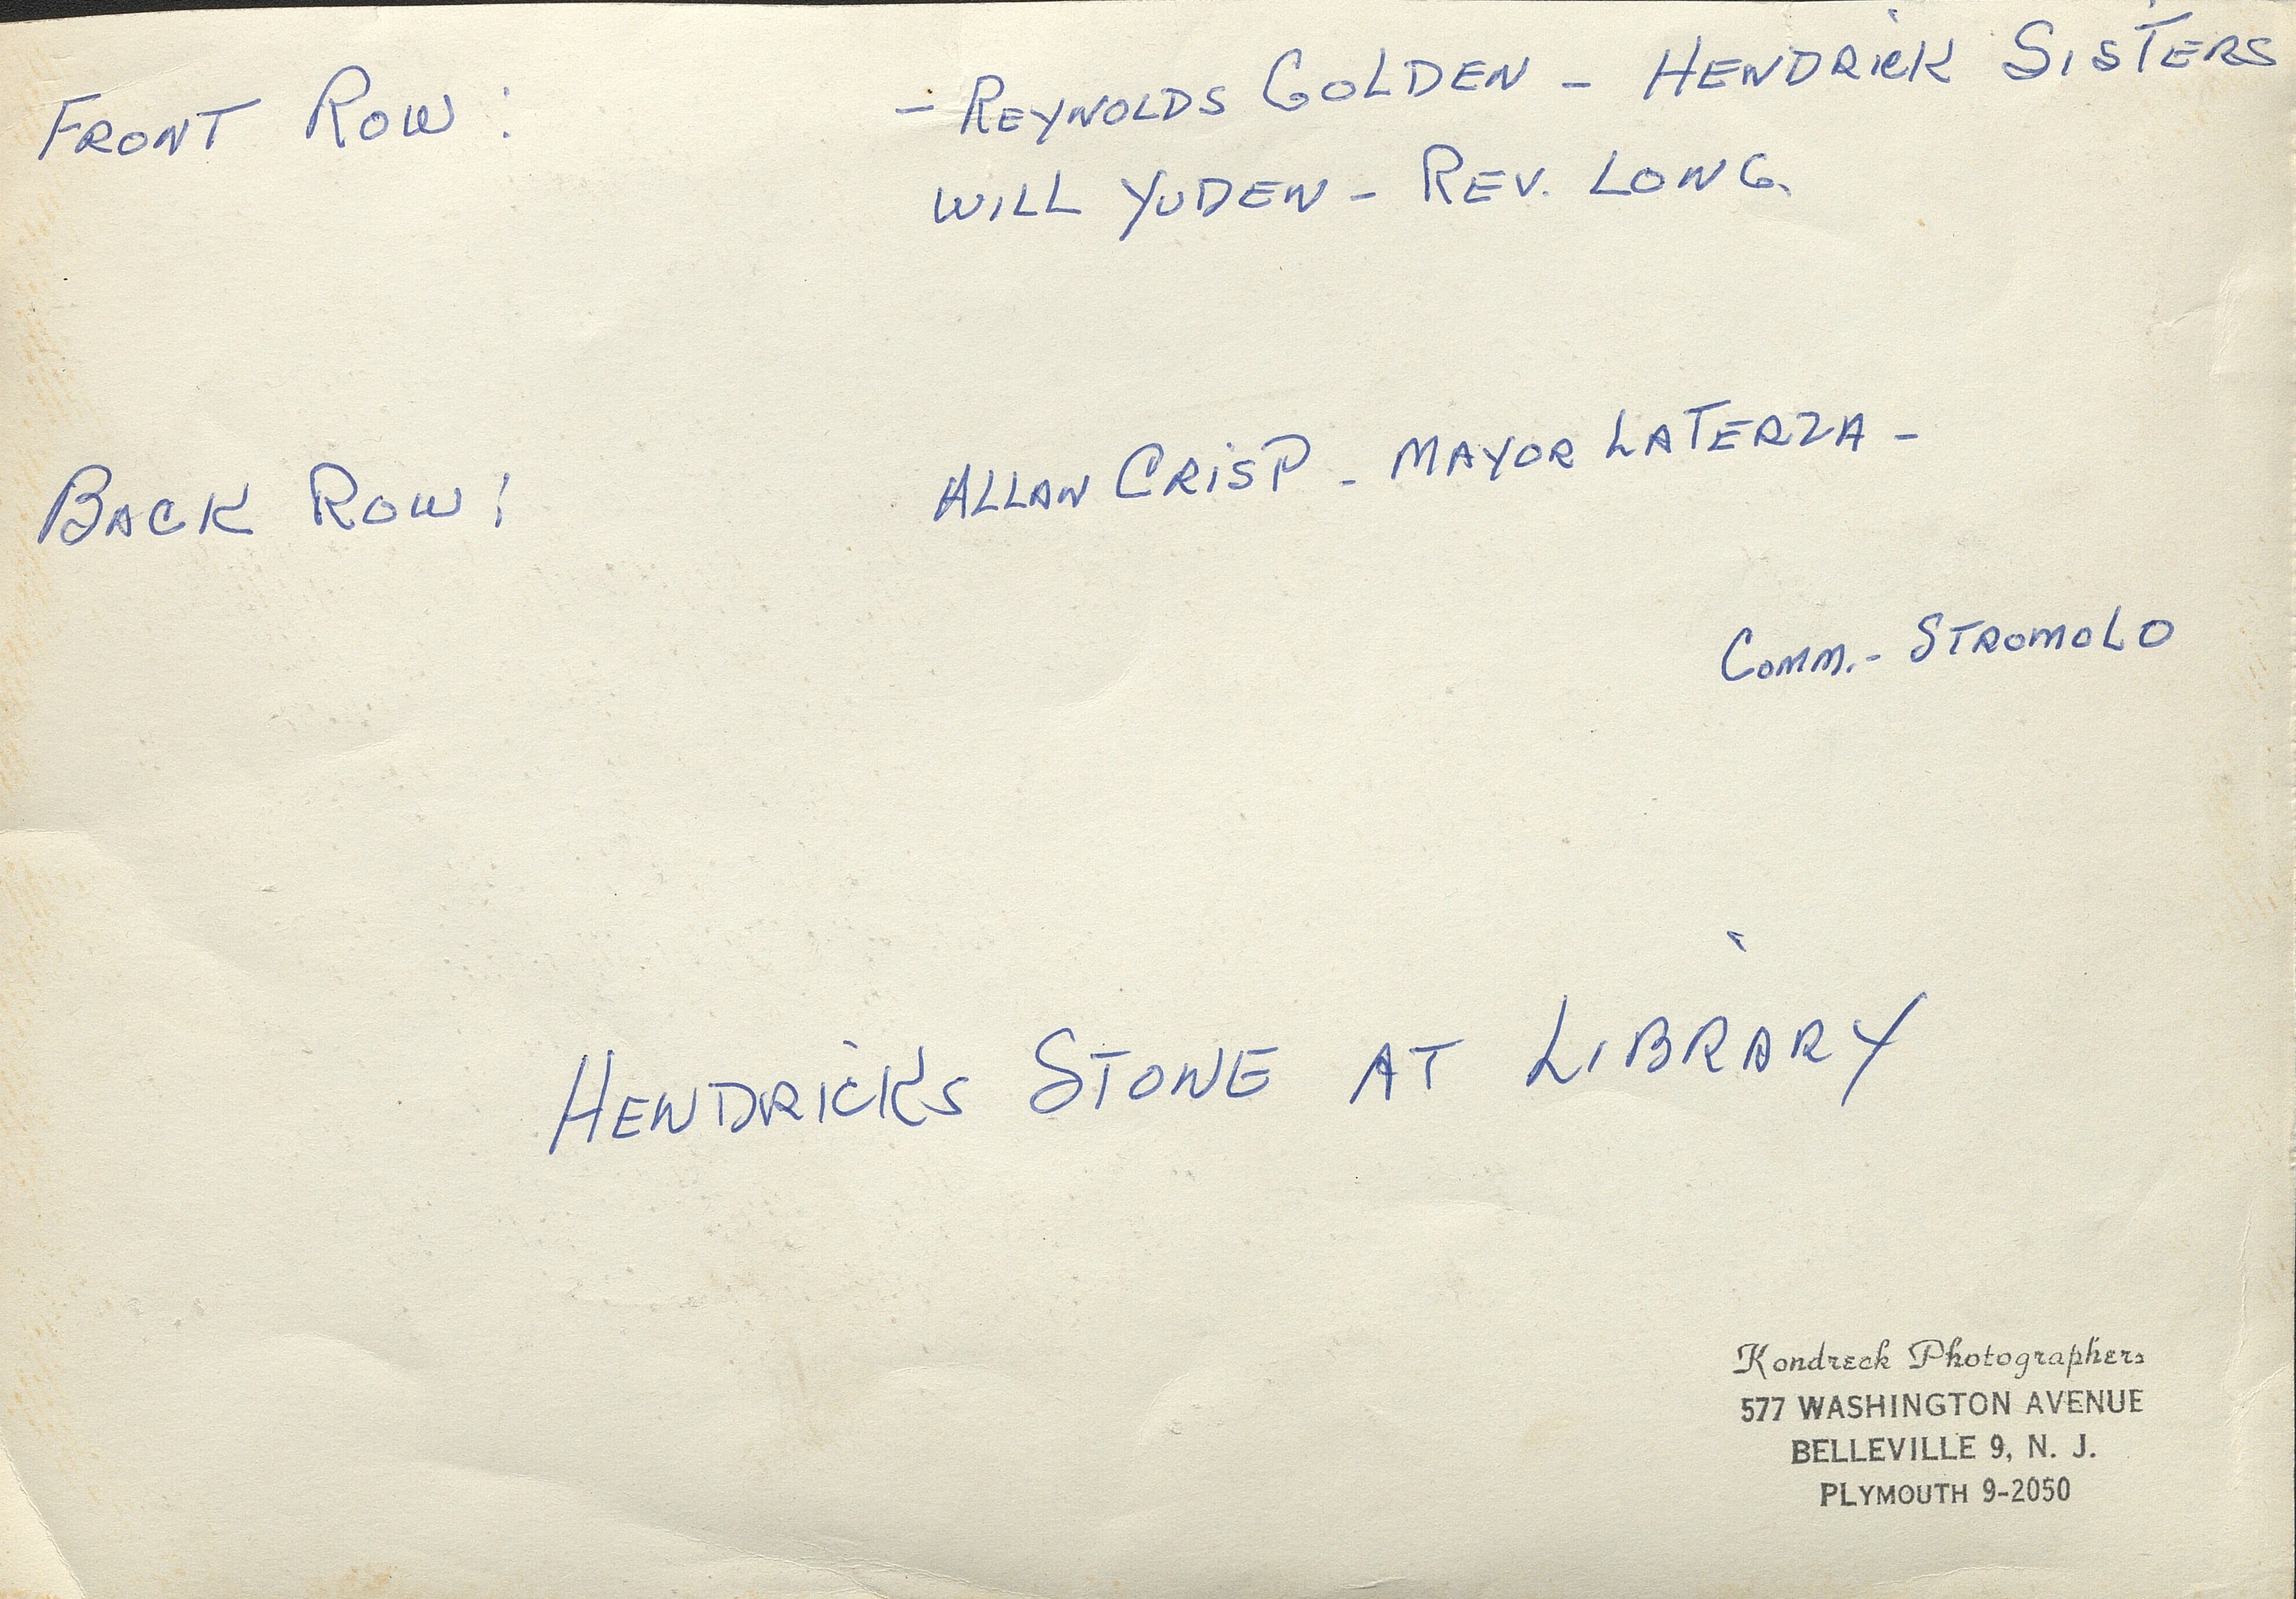 FRONT ROW: - REYNOLDS GOLDEN - HENDRICK SISTERS
WILL YUDEN - REV. LONG.
BACK ROW: ALLAN CRISP - MAYOR LATERZA -
COMM. - STROMOLO
HENDRICKS STONE AT LIBRARY
Kondreck Photographers
577 WASHINGTON AVENUE
BELLEVILLE 9, N. J.
PLYMOUTH 9-2050